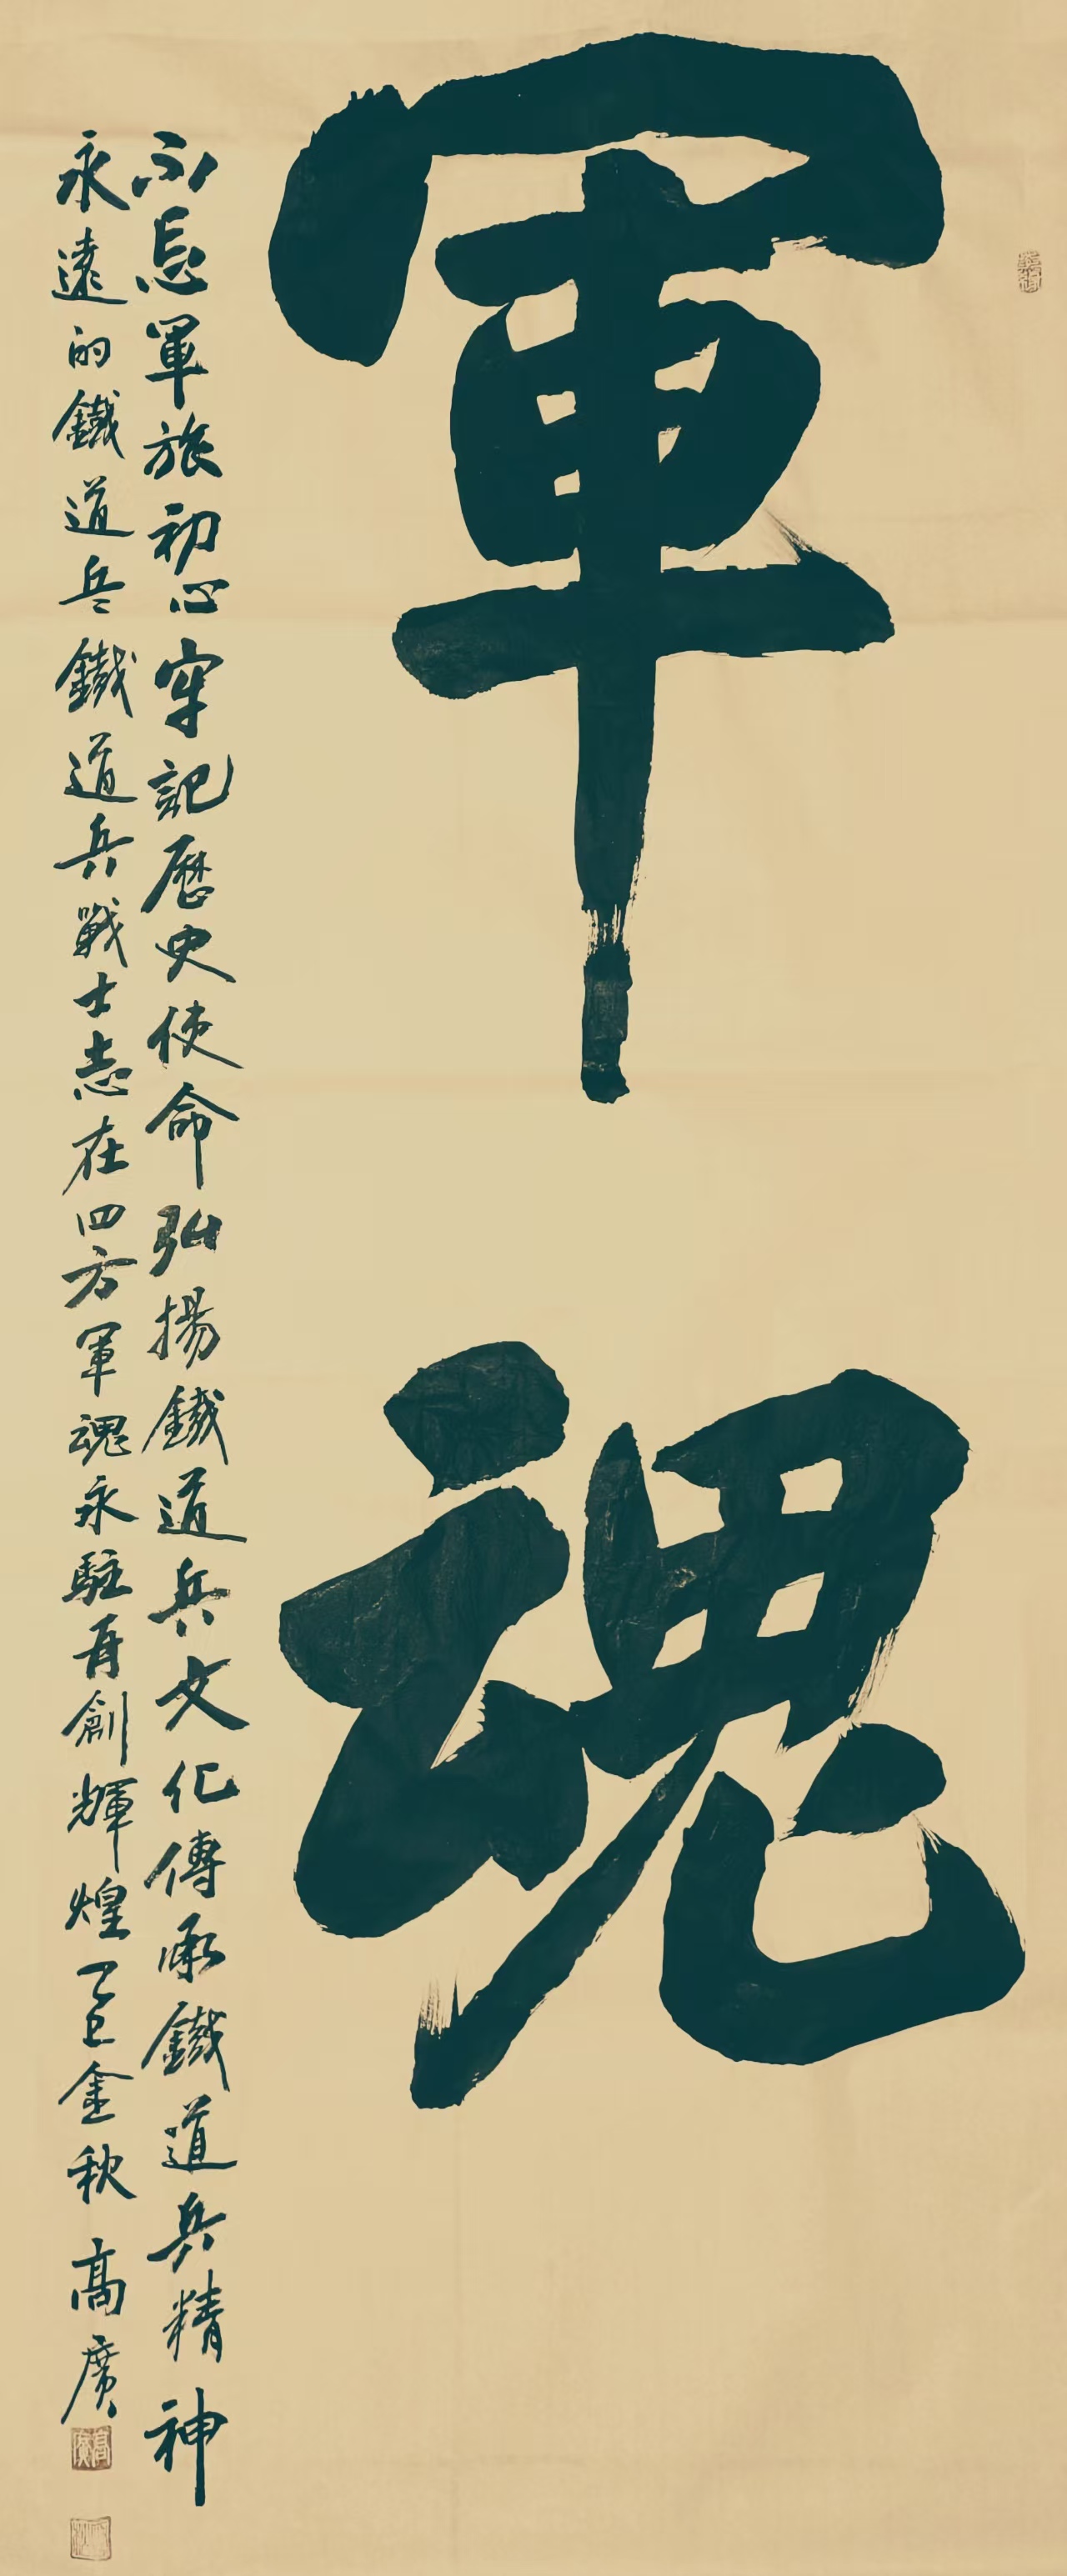 軍魂
不忘軍旅初心牢記歷史使命弘揚鐵道兵文化傳承鐵道兵精神
永遠的鐵道兵鐵道兵戰士志在四方軍魂永駐再創輝煌乙巳金秋 高廣
高廣